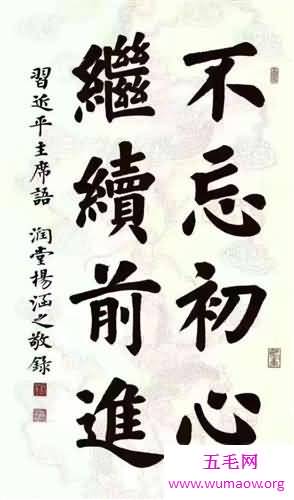 不忘初心
繼續前進
習近平主席語 润堂楊涵之敬錄
五毛网
www.wumaow.org